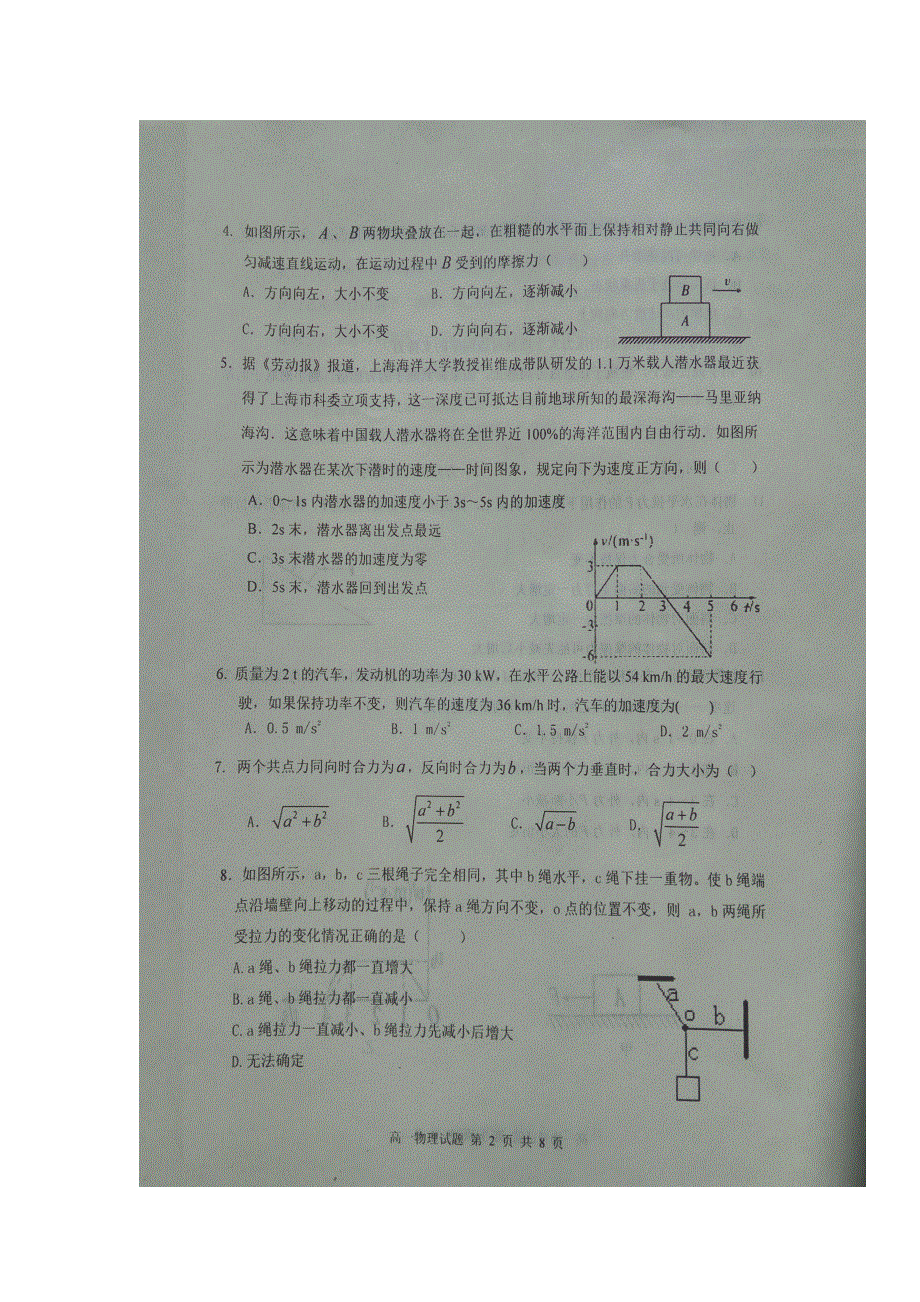 4. 如图所示，A、B两物块叠放在一起，在粗糙的水平面上保持相对静止共同向右做
匀减速直线运动，在运动过程中B受到的摩擦力（　　）
A．方向向左，大小不变　B．方向向左，逐渐减小
C．方向向右，大小不变　D．方向向右，逐渐减小
B v
A
5. 据《劳动报》报道，上海海洋大学教授崔维成带队研发的 1.1 万米载人潜水器最近获
得了上海市科委立项支持，这一深度已可抵达目前地球所知的最深海沟——马里亚纳
海沟．这意味着中国载人潜水器将在全世界近 100%的海洋范围内自由行动．如图所
示为潜水器在某次下潜时的速度——时间图象，规定向下为速度正方向，则（　　）
A．0～1s 内潜水器的加速度小于 3s～5s 内的加速度
B．2s 末，潜水器离出发点最远
C．3s 末潜水器的加速度为零
D．5s 末，潜水器回到出发点
v/(m·s⁻¹)
3
0 1 2 3 4 5 6 t/s
-3
-6
6. 质量为 2 t 的汽车，发动机的功率为 30 kW，在水平公路上能以 54 km/h 的最大速度行
驶，如果保持功率不变，则汽车的速度为 36 km/h 时，汽车的加速度为(　　)
A．0.5 m/s²　B．1 m/s²　C．1.5 m/s²　D．2 m/s²
7. 两个共点力同向时合力为a，反向时合力为b，当两个力垂直时，合力大小为（　）
A. √(a²+b²)　B. √((a²+b²)/2)　C. √(a−b)　D. √((a+b)/2)
8. 如图所示，a，b，c 三根绳子完全相同，其中 b 绳水平，c 绳下挂一重物。使 b 绳端
点沿墙壁向上移动的过程中，保持 a 绳方向不变，o 点的位置不变，则 a，b 两绳所
受拉力的变化情况正确的是（　　）
A.a 绳、b 绳拉力都一直增大
B.a 绳、b 绳拉力都一直减小
C.a 绳拉力一直减小、b 绳拉力先减小后增大
D.无法确定
a
o b
c
高一物理试题 第 2 页 共 8 页